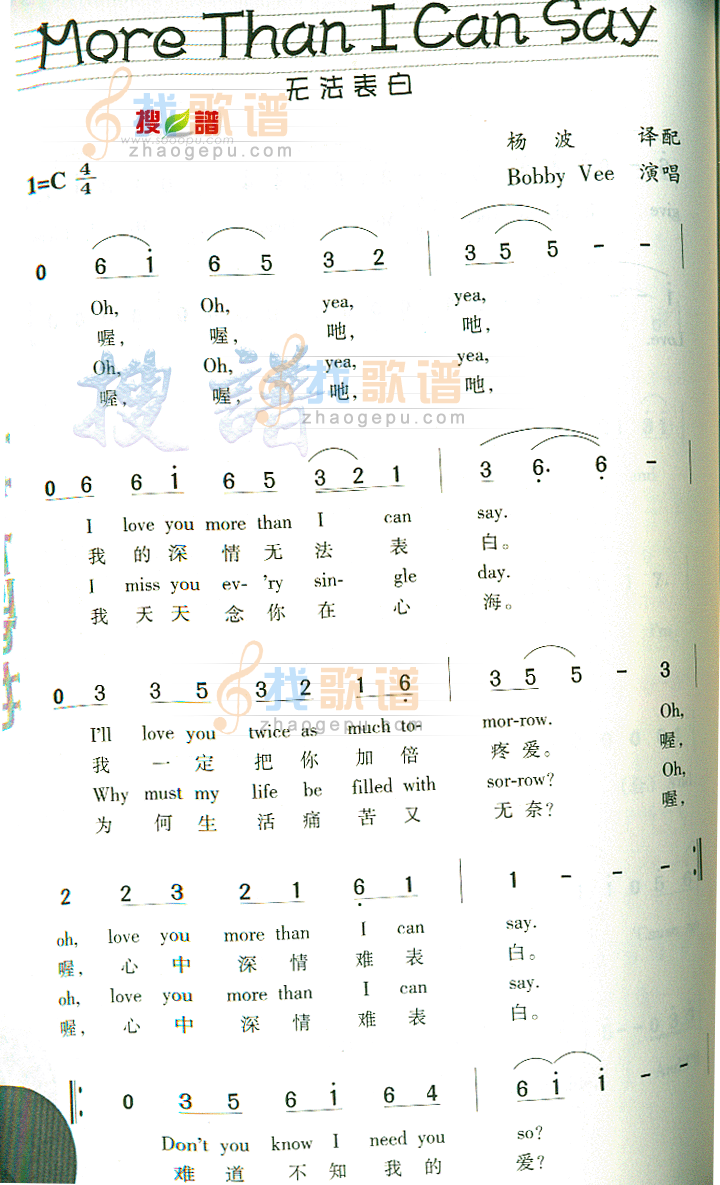 More Than I Can Say
无法表白
找歌谱
搜谱
www.sooopu.com
zhaogepu.com
杨波 译配
1=C 4/4
Bobby Vee 演唱
0 6 i 6 5 3 2 | 3 5 5 - -
Oh, Oh, yea, yea,
喔, 喔, 吔, 吔,
Oh, Oh, yea, yea,
喔, 喔, 吔, 吔,
搜谱
找歌谱
zhaogepu.com
0 6 6 i 6 5 3 2 1 | 3 6· 6 -
I love you more than I can say.
我的深情无法表白。
I miss you ev- 'ry sin- gle day.
我天天念你在心海。
找歌谱
zhaogepu.com
0 3 3 5 3 2 1 6 | 3 5 5 - 3
I'll love you twice as much to- mor-row. Oh,
我一定把你加倍疼爱。 喔,
Why must my life be filled with sor-row? Oh,
为何生活痛苦又无奈? 喔,
2 2 3 2 1 6 1 | 1 - - - :|
oh, love you more than I can say.
喔, 心中深情难表白。
oh, love you more than I can say.
喔, 心中深情难表白。
|: 0 3 5 6 i 6 4 | 6 i i - -
Don't you know I need you so?
难道不知我的爱?